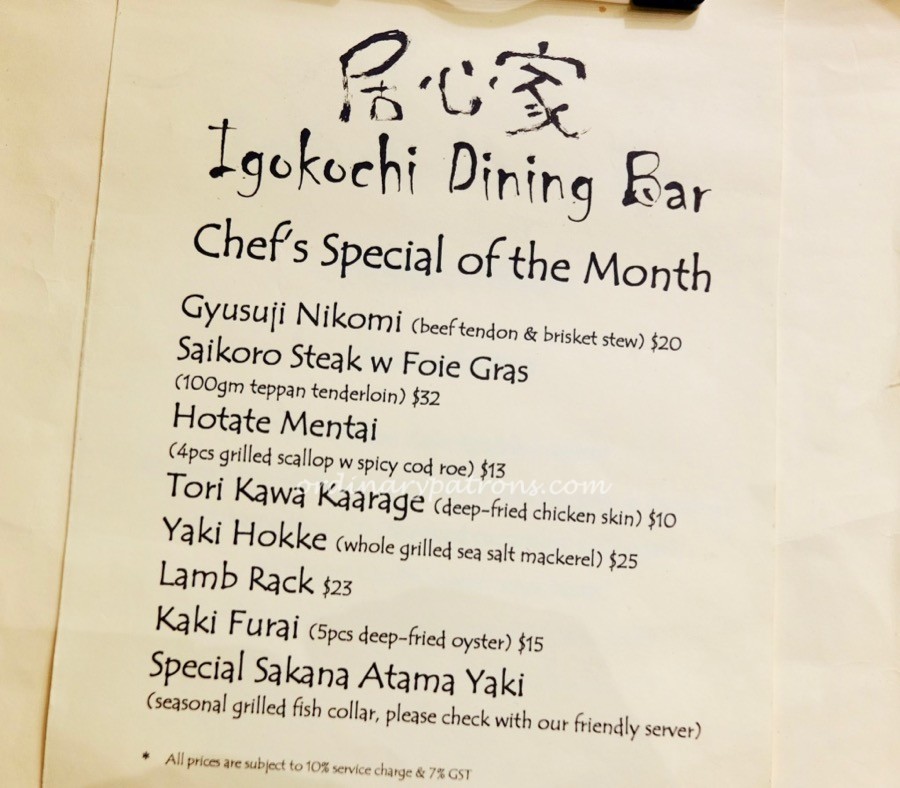 居心家
Igokochi Dining Bar
Chef's Special of the Month
Gyusuji Nikomi (beef tendon & brisket stew) $20
Saikoro Steak w Foie Gras
(100gm teppan tenderloin) $32
Hotate Mentai
(4pcs grilled scallop w spicy cod roe) $13
ordinarypatrons.com
Tori Kawa Kaarage (deep-fried chicken skin) $10
Yaki Hokke (whole grilled sea salt mackerel) $25
Lamb Rack $23
Kaki Furai (5pcs deep-fried oyster) $15
Special Sakana Atama Yaki
(seasonal grilled fish collar, please check with our friendly server)
* All prices are subject to 10% service charge & 7% GST